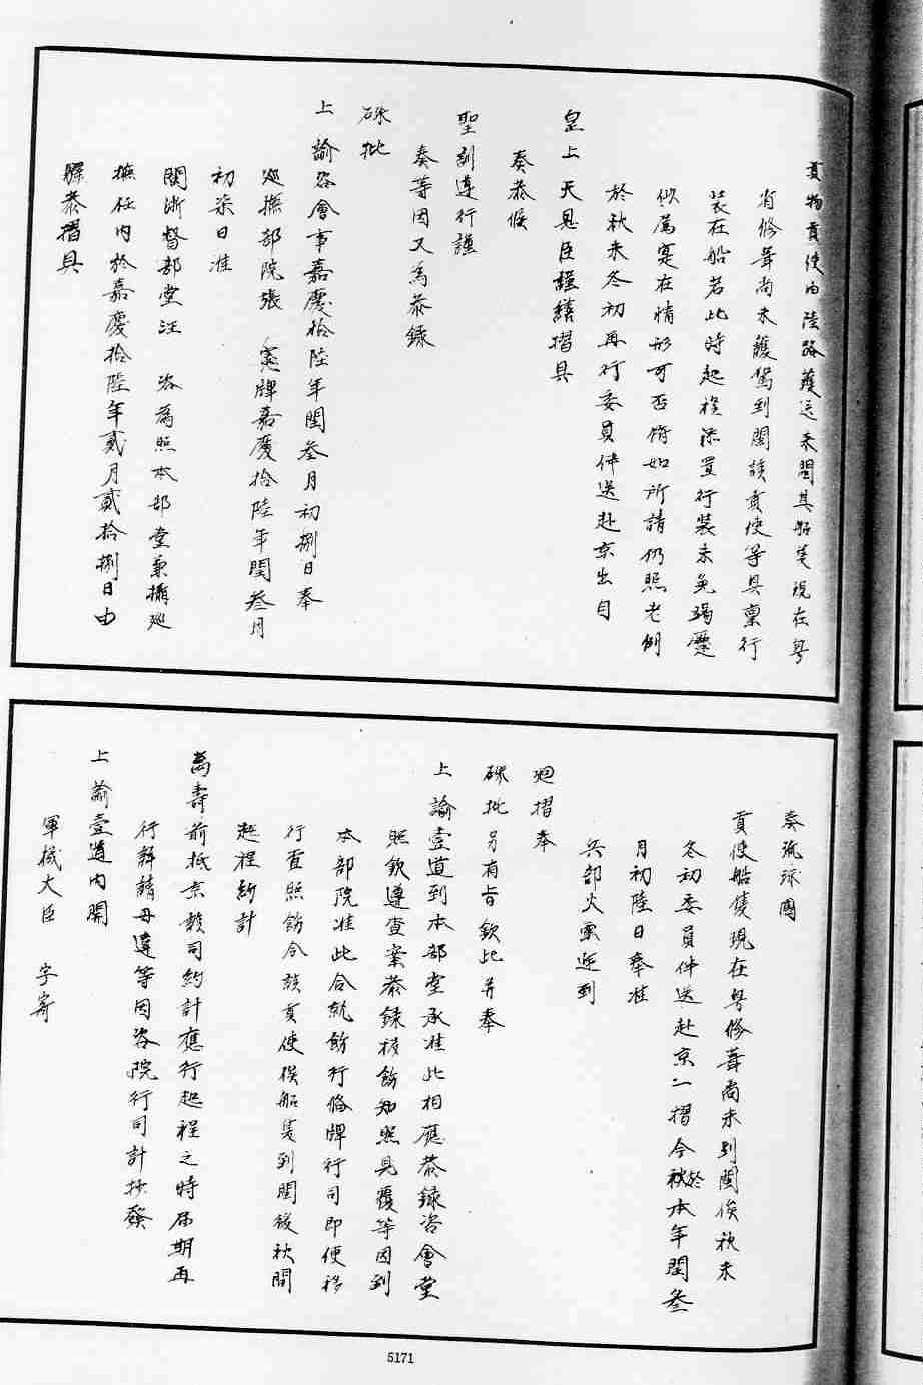 貢物貢使由陸路護送來閩其船隻現在粵
省修葺尚未護駕到閩該貢使等具稟行
裝在船若此時起程添置行裝未免竭蹷
似屬寔在情形可否俯如所請仍照老例
於秋末冬初再行委員伴送赴京出自
皇上天恩臣謹繕摺具
奏恭候
聖訓遵行謹
奏等因又為恭錄
硃批
上諭咨會事嘉慶拾陸年閏叁月初捌日奉
巡撫部院張 憲牌嘉慶拾陸年閏叁月
初柒日准
閩浙督部堂汪 咨為照本部堂兼攝巡
撫任內於嘉慶拾陸年貳月貳拾捌日由
驛恭摺具
奏琉球國
貢使船隻現在粵修葺尚未到閩俟秋末
冬初委員伴送赴京一摺今於本年閏叁
月初陸日奉准
兵部火票遞到
廻摺奉
硃批另有旨欽此并奉
上諭壹道到本部堂承准此相應恭錄咨會堂
照欽遵查案恭錄移飭知照具覆等因到
本部院准此合就飭行備牌行司即便移
行查照飭令該貢使俟船隻到閩後秋間
起程約計
萬壽前抵京該司約計應行起程之時屆期再
行詳請毋違等因咨院行司計抄發
上諭壹道內開
軍機大臣 字寄
5171